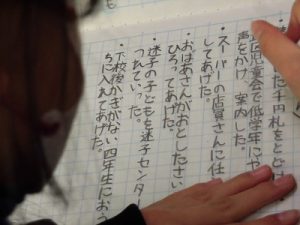 た千円札をとど
児童会で低学年にや
声をかけ、案内した。
・スーパーの店員さんに仕
してあげた。
・おばあさんがおとしたさい
ひろってあげた。
・迷子の子どもを迷子センター
つれていった。
・下校後かぎがない四年生におう
ちに入れてあげた。